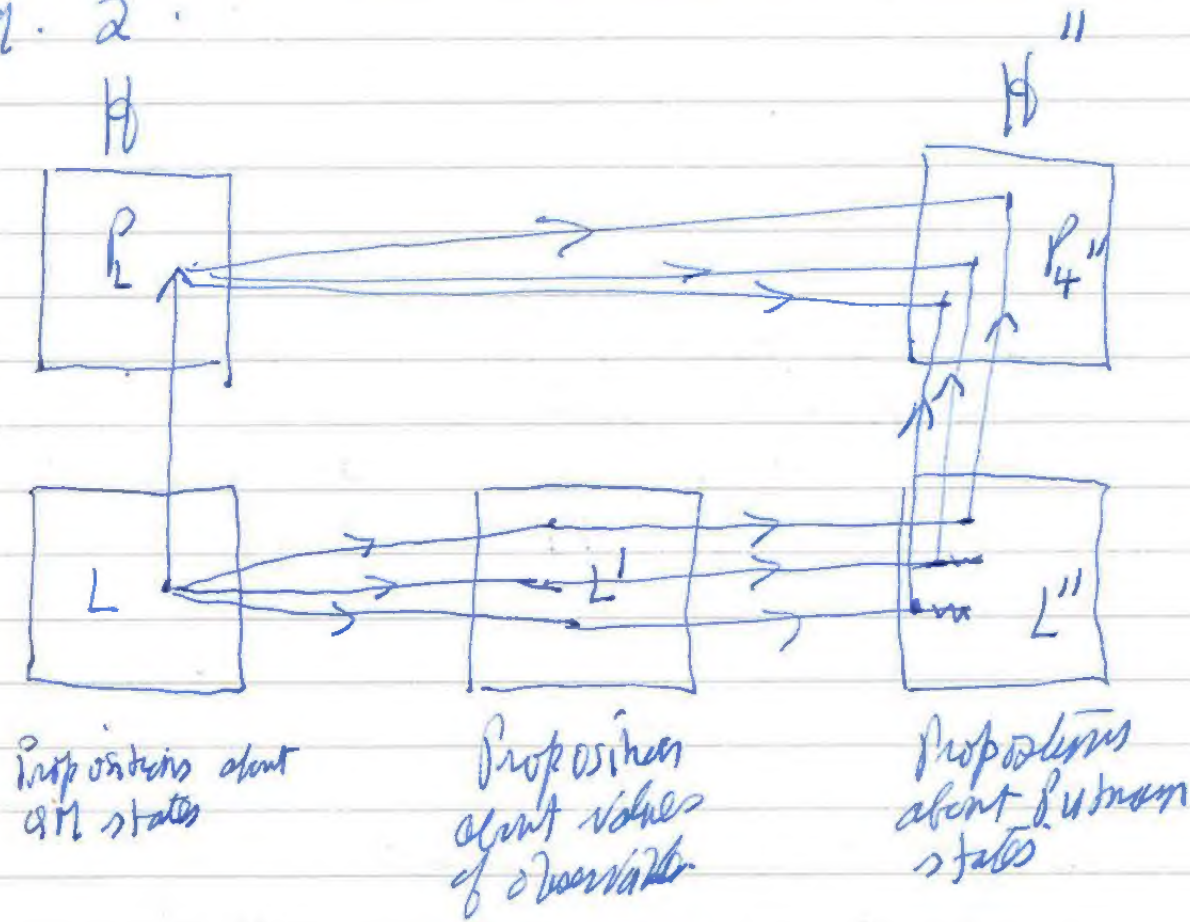 2.
"
H H
P_L P_4"
L L' L"
Propositions about
QM states
Proposition
about values
of observables
Propositions
about Putnam
states.